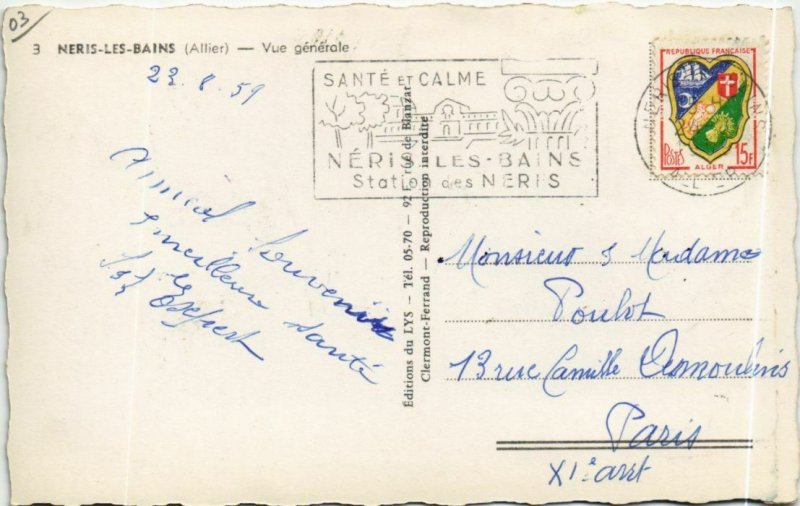 03
3 NERIS-LES-BAINS (Allier) — Vue générale
23.8.59
SANTÉ ET CALME
NÉRIS-LES-BAINS
Station des NERFS
RÉPUBLIQUE FRANÇAISE
POSTES
15F
ALGER
Amical Souvenir
meilleure santé
les
Éditions du LYS - Tél. 05-70 - 92 rue de Blanzat
Clermont-Ferrand - Reproduction interdite
Monsieur & Madame
Poulot
13 rue Camille Desmoulins
Paris
XIe arrt